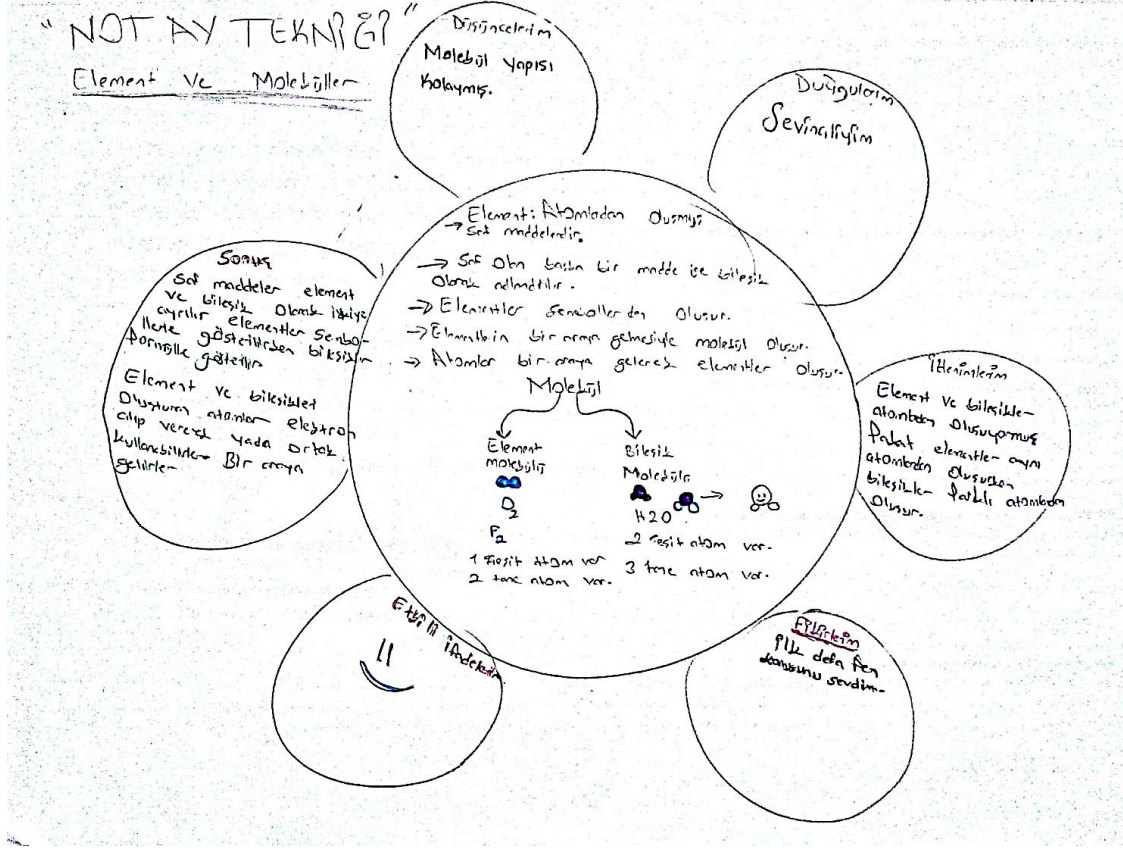 "NOT AY TEKNİĞİ"
Element ve Moleküller
Düşüncelerim
Molekül yapısı
Kolaymış.
Duygularım
Sevinçliyim
Element: Atomladan Oluşmuş
→ Saf maddelerdir.
→ Saf Olan başka bir madde ise bileşik
Olarak adlandırılır.
→ Elementler Sembollerden Oluşur.
→ bir araya gelmesiyle molekül Oluşur.
→ Atomlar bir araya gelerek elementler oluşur.
Molekül
Element
molekülü
O2
F2
1 çeşit atom var
2 tane atom var.
Bileşik
Molekülü
→
H2O
2 çeşit atom var.
3 tane atom var.
Sonuç
Saf maddeler element
ve bileşik Olarak ikiye
ayrılır elementler Senbo-
llerle gösterilirken bileşikler
formülle gösterilir
Element ve bileşikleri
Oluşturan atomlar elektron
alıp vererek yada Ortak
Kullanabilirler Bir araya
gelirler
İzlenimlerim
Element ve bileşikler
atomlardan Oluşuyormuş
Fakat elementler aynı
atomlardan Oluşurken
bileşikler farklı atomlardan
Oluşur.
Etkili ifadeler
Fikirlerim
İlk defa Fen
konusunu sevdim.